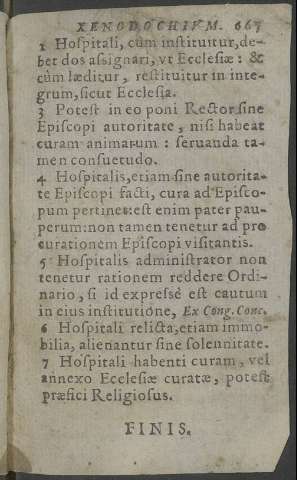 XENODOCHIVM. 667
1 Hospitali, cùm instituitur, de-
bet dos assignari, vt Ecclesiæ: &
cùm læditur, restituitur in inte-
grum, sicut Ecclesia.
3 Potest in eo poni Rector sine
Episcopi autoritate, nisi habeat
curam animarum: seruanda ta-
men consuetudo.
4 Hospitalis, etiam sine autorita-
te Episcopi facti, cura ad Episco-
pum pertinet: est enim pater pau-
perum: non tamen tenetur ad pro
curationem Episcopi visitantis.
5 Hospitalis administrator non
tenetur rationem reddere Ordi-
nario, si id expressè est cautum
in eius institutione, Ex Cong. Conc.
6 Hospitali relicta, etiam immo-
bilia, alienantur sine solennitate.
7 Hospitali habenti curam, vel
annexo Ecclesiæ curatæ, potest
præfici Religiosus.
FINIS.